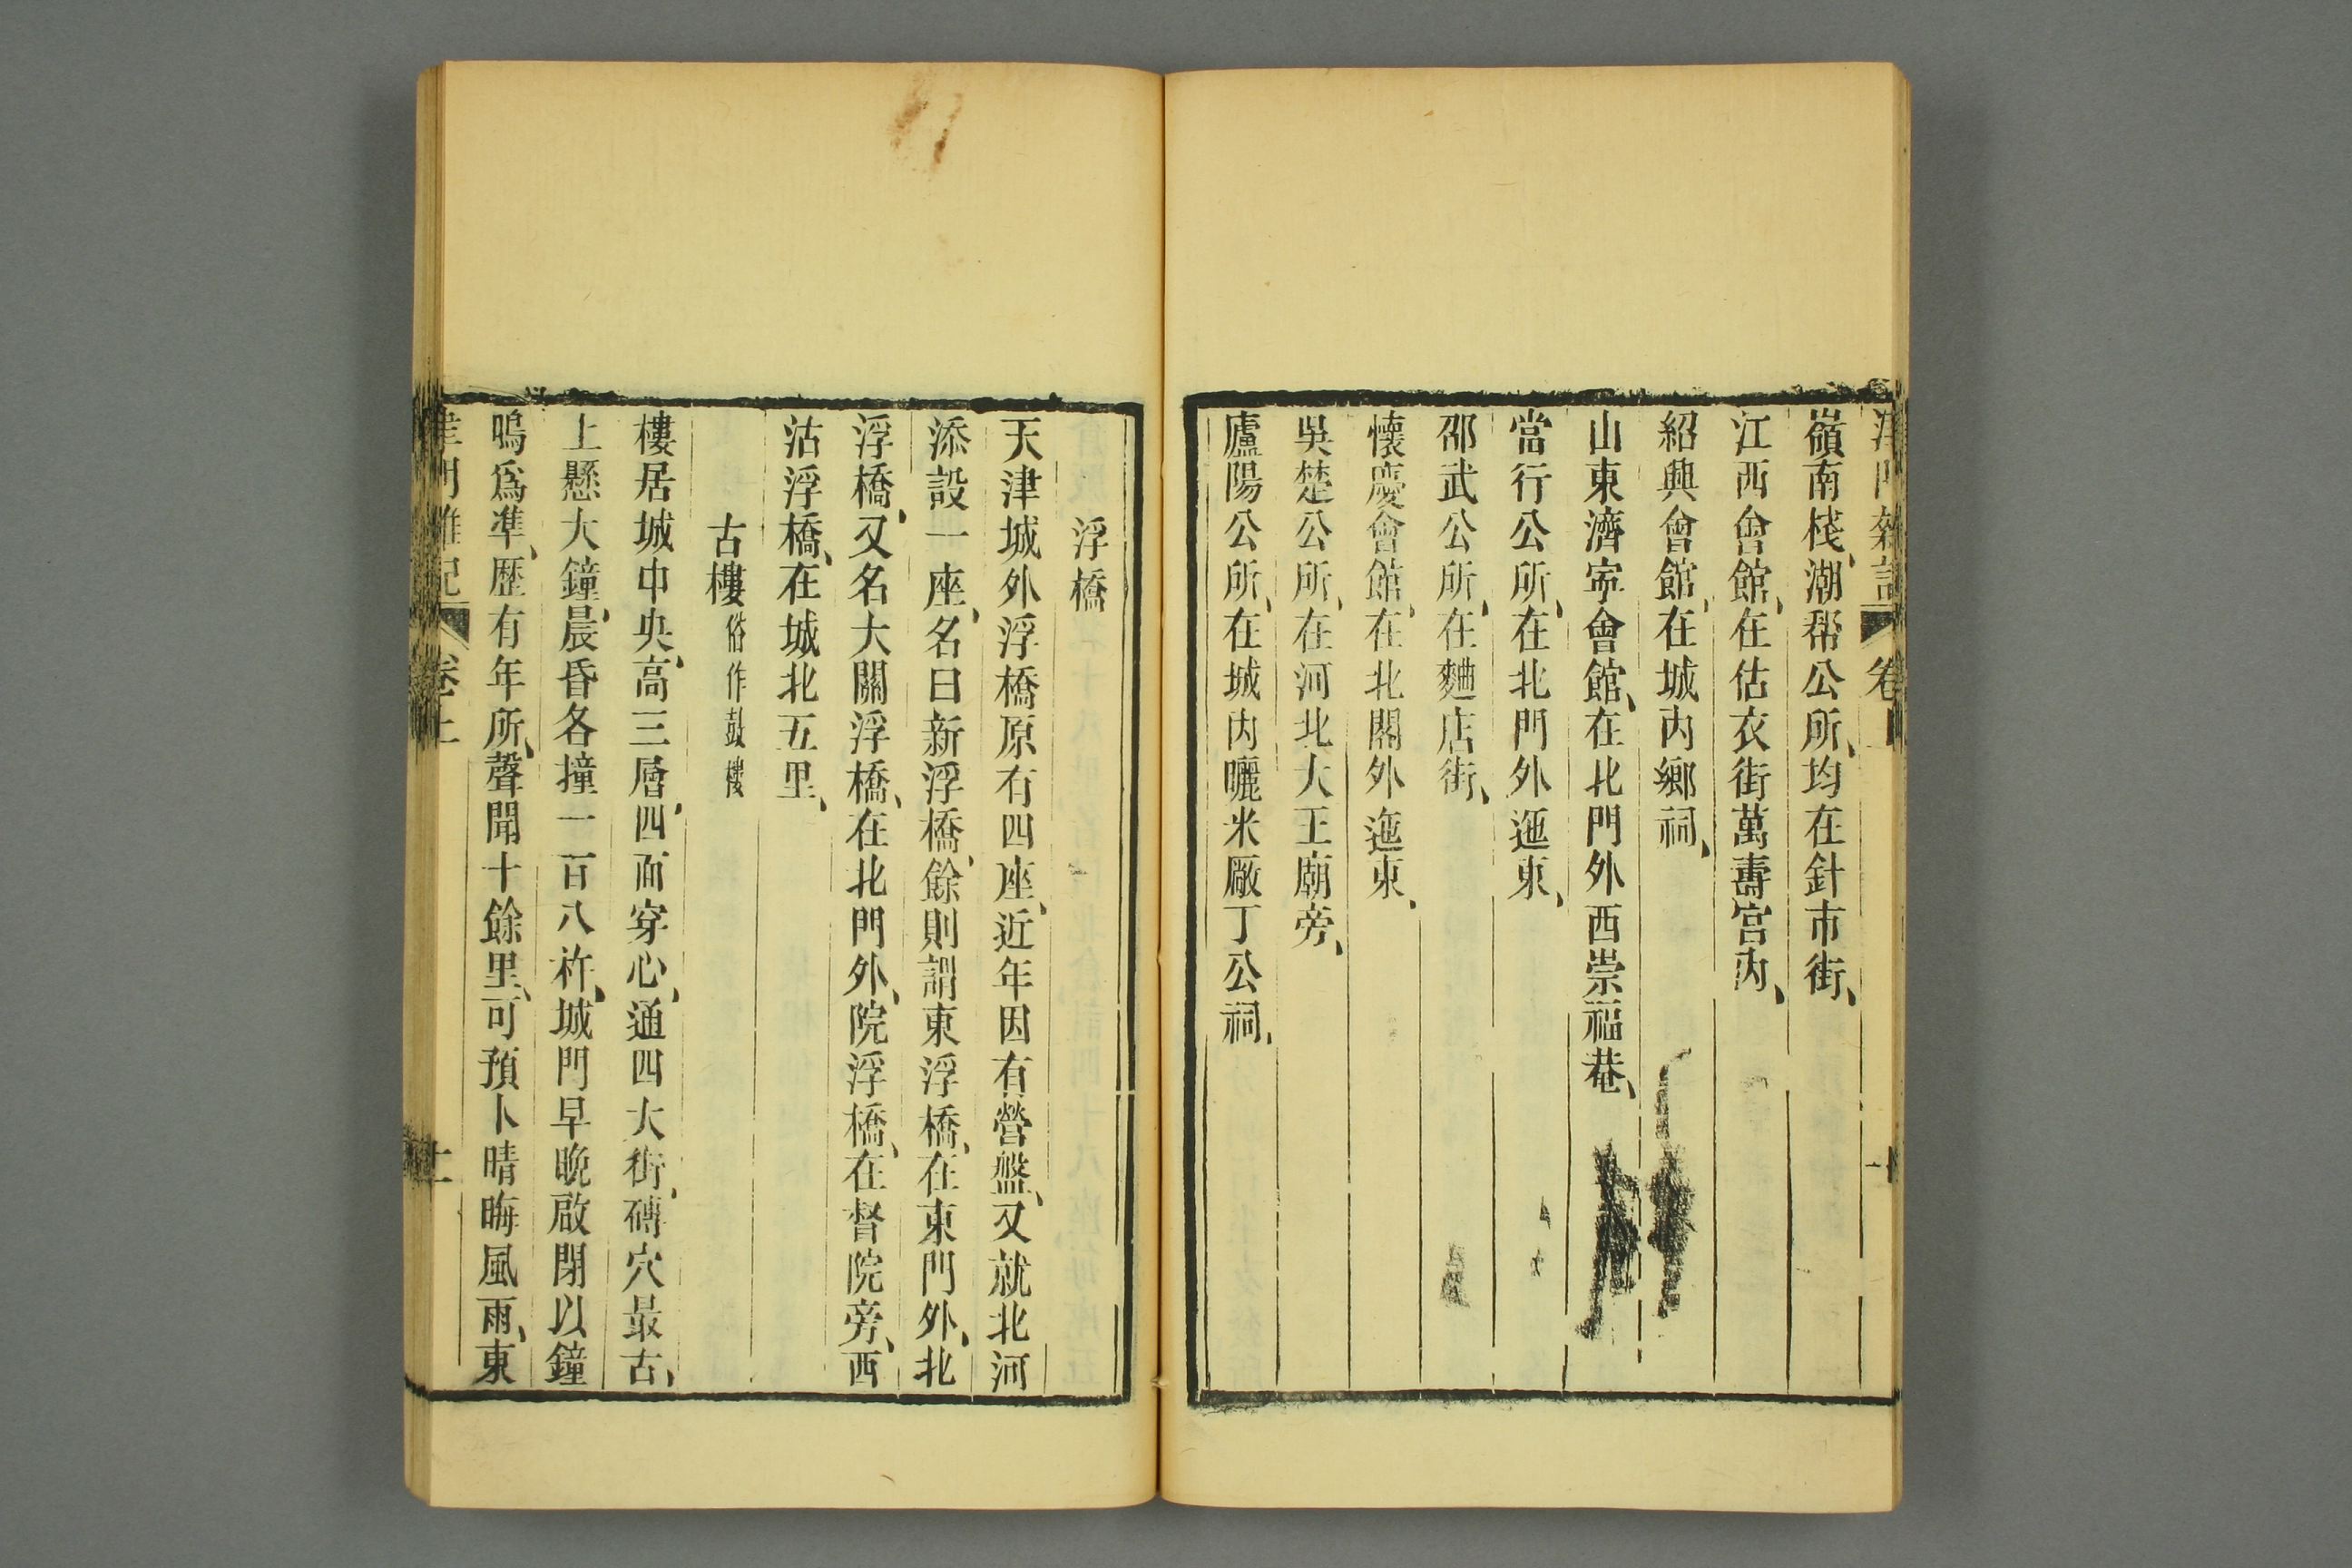 嶺南棧、潮幫公所、均在針市街、
江西會館、在估衣街萬壽宮內、
紹興會館、在城內鄉祠、
山東濟寧會館、在北門外西崇福菴、
當行公所、在北門外迤東、
邵武公所、在麯店街、
懷慶會館、在北閣外迤東、
吳楚公所、在河北大王廟旁、
廬陽公所、在城內曬米廠丁公祠、
浮橋
天津城外浮橋原有四座、近年因有營盤、又就北河
添設一座、名曰新浮橋、餘則謂東浮橋、在東門外、北
浮橋、又名大關浮橋、在北門外、院浮橋、在督院旁、西
沽浮橋、在城北五里、
古樓俗作鼓樓
樓居城中央、高三層、四面穿心、通四大街、磚穴最古、
上懸大鐘、晨昏各撞一百八杵、城門早晚啟閉以鐘
鳴爲準、歷有年所、聲聞十餘里、可預卜晴晦風雨、東
津門雜記 卷上